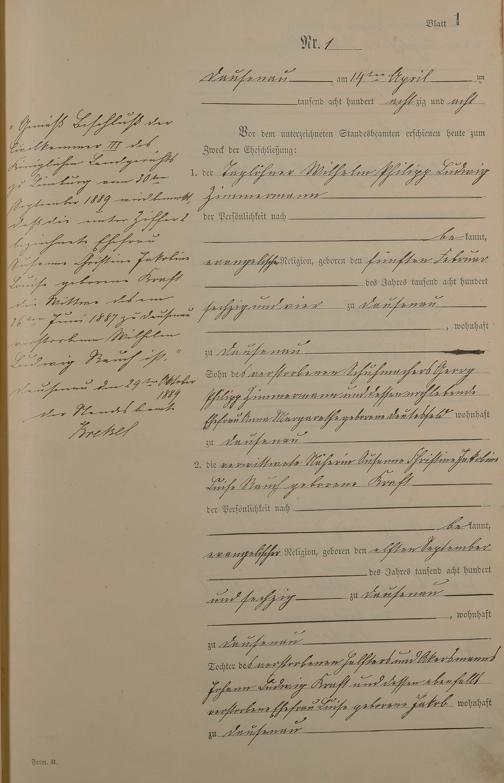 Blatt 1
Nr. 1
Dausenau am 14ten April
tausend acht hundert achtzig und acht
Vor dem unterzeichneten Standesbeamten erschienen heute zum
Zweck der Eheschließung:
1. der Taglöhner Wilhelm Philipp Ludwig
Zimmermann
der Persönlichkeit nach
bekannt,
evangelischer Religion, geboren den fünften Februar
des Jahres tausend acht hundert
sechzig und vier zu Dausenau
, wohnhaft
zu Dausenau
Sohn des verstorbenen Schuhmachers Georg
Philipp Zimmermann und dessen
Ehefrau Anna Margarethe geborene wohnhaft
zu Dausenau
2. die verwittwete Näherin Susanne Christine Jakobine
Luise Rauch geborene Kraft
der Persönlichkeit nach
bekannt,
evangelischer Religion, geboren den elften September
des Jahres tausend acht hundert
und sechzig zu Dausenau
, wohnhaft
zu Dausenau
Tochter des verstorbenen und Ackersmanns
Johann Ludwig Kraft und dessen ebenfalls
verstorbene Ehefrau Luise geborene Jakob wohnhaft
zu Dausenau
"Gemäß Beschluß der
Civilkammer III des
Königlichen Landgerichts
zu Limburg vom 30ten
September 1889 wird vermerkt,
daß die unter Ziffer 2
bezeichnete Ehefrau
Susanne Christine Jakobine
Luise geborene Kraft
die Wittwe des am
16ten Juni 1887 zu Dausenau
verstorbenen Wilhelm
Ludwig Rauch ist."
Dausenau den 29ten Oktober
1889
Der Standesbeamte
Form. B.